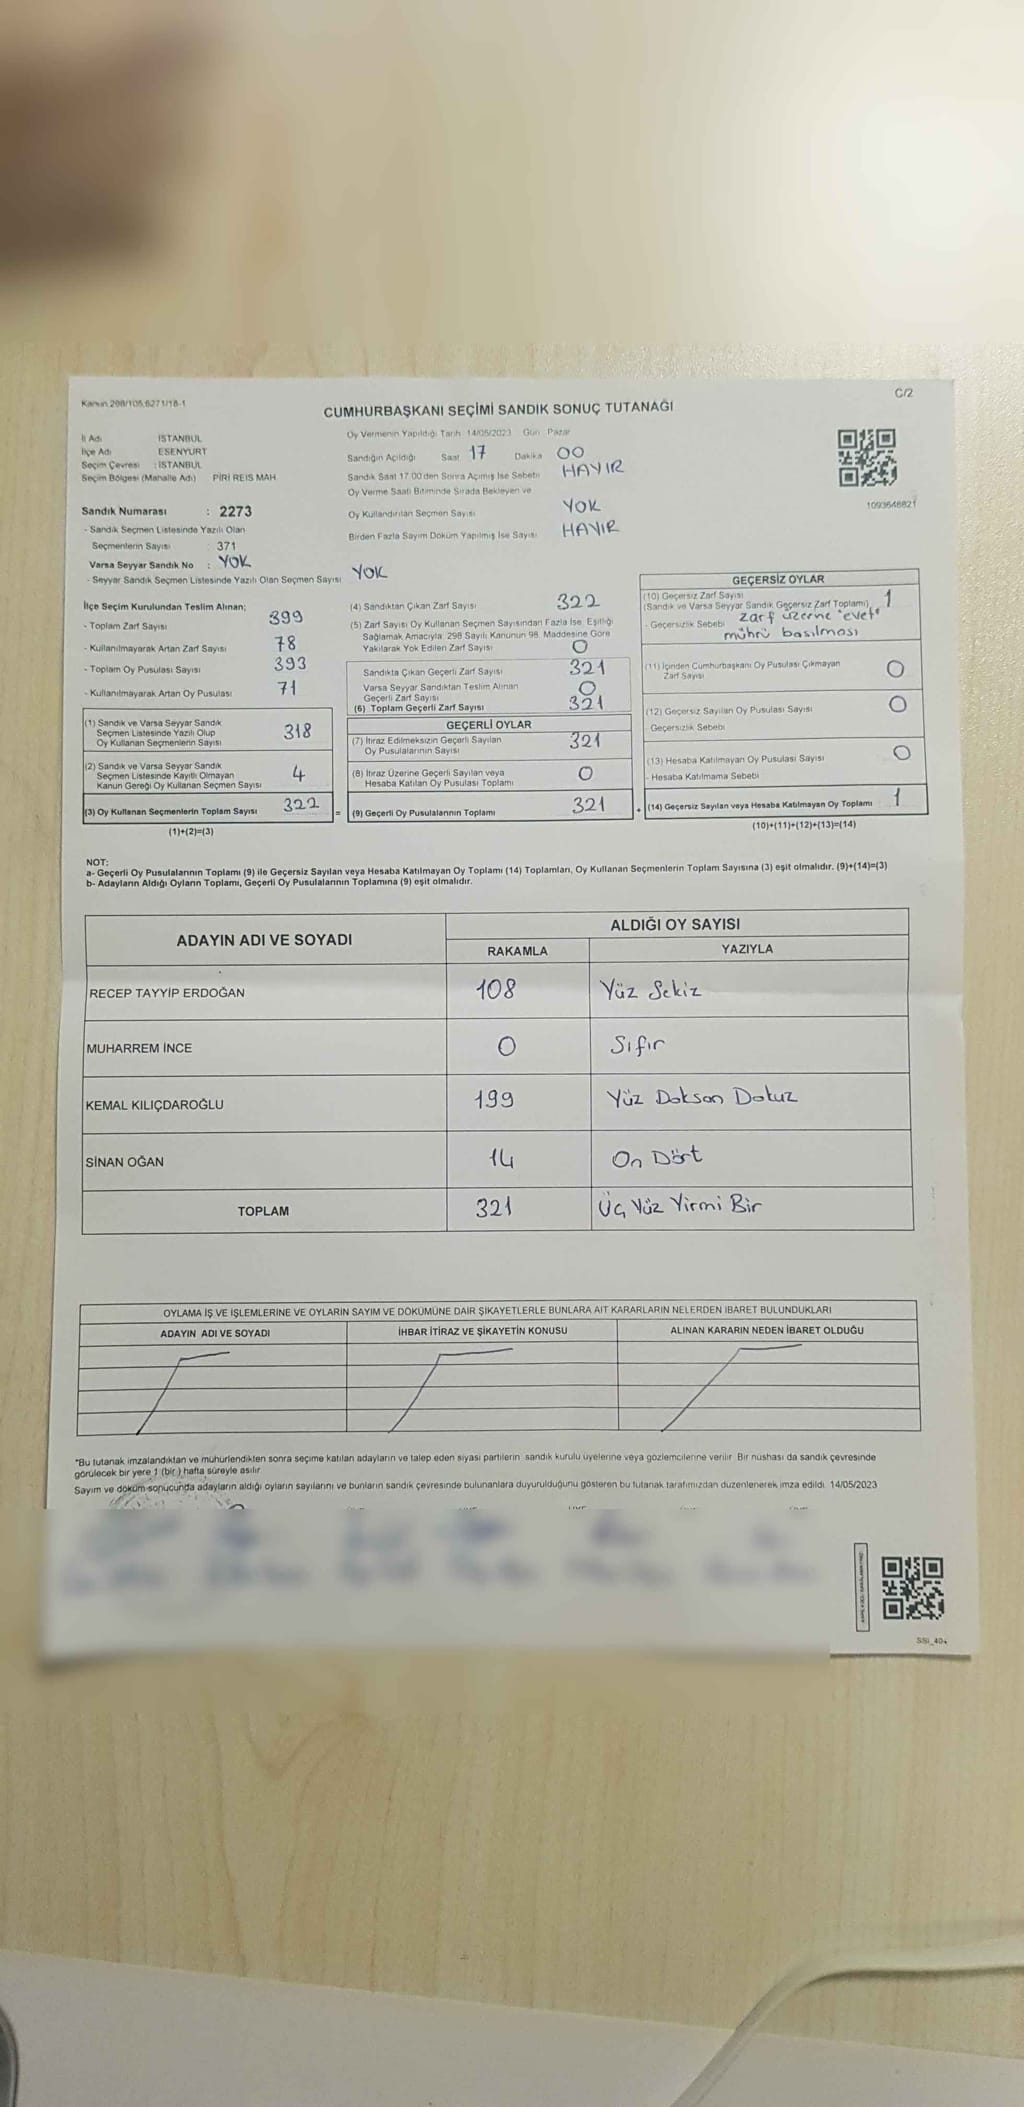 Kanun 298/105,6271/18-1
C/2
CUMHURBAŞKANI SEÇİMİ SANDIK SONUÇ TUTANAĞI
İl Adı : İSTANBUL
İlçe Adı : ESENYURT
Seçim Çevresi : İSTANBUL
Seçim Bölgesi (Mahalle Adı) PİRİ REİS MAH.
Sandık Numarası : 2273
- Sandık Seçmen Listesinde Yazılı Olan
Seçmenlerin Sayısı : 371
Varsa Seyyar Sandık No : YOK
- Seyyar Sandık Seçmen Listesinde Yazılı Olan Seçmen Sayısı YOK
Oy Vermenin Yapıldığı Tarih 14/05/2023 Gün Pazar
Sandığın Açıldığı Saat 17 Dakika 00
Sandık Saat 17:00'den Sonra Açılmış İse Sebebi HAYIR
Oy Verme Saati Bitiminde Sırada Bekleyen ve
Oy Kullandırılan Seçmen Sayısı YOK
Birden Fazla Sayım Döküm Yapılmış İse Sayısı HAYIR
1093648821
İlçe Seçim Kurulundan Teslim Alınan;
- Toplam Zarf Sayısı 399
- Kullanılmayarak Artan Zarf Sayısı 78
- Toplam Oy Pusulası Sayısı 393
- Kullanılmayarak Artan Oy Pusulası 71
(1) Sandık ve Varsa Seyyar Sandık
Seçmen Listesinde Yazılı Olup
Oy Kullanan Seçmenlerin Sayısı 318
(2) Sandık ve Varsa Seyyar Sandık
Seçmen Listesinde Kayıtlı Olmayan
Kanun Gereği Oy Kullanan Seçmen Sayısı 4
(3) Oy Kullanan Seçmenlerin Toplam Sayısı 322 =
(1)+(2)=(3)
(4) Sandıktan Çıkan Zarf Sayısı 322
(5) Zarf Sayısı Oy Kullanan Seçmen Sayısından Fazla İse, Eşitliği
Sağlamak Amacıyla, 298 Sayılı Kanunun 98. Maddesine Göre
Yakılarak Yok Edilen Zarf Sayısı 0
Sandıkta Çıkan Geçerli Zarf Sayısı 321
Varsa Seyyar Sandıktan Teslim Alınan
Geçerli Zarf Sayısı 0
(6) Toplam Geçerli Zarf Sayısı 321
GEÇERLİ OYLAR
(7) İtiraz Edilmeksizin Geçerli Sayılan
Oy Pusulalarının Sayısı 321
(8) İtiraz Üzerine Geçerli Sayılan veya
Hesaba Katılan Oy Pusulası Toplamı 0
(9) Geçerli Oy Pusulalarının Toplamı 321 +
GEÇERSİZ OYLAR
(10) Geçersiz Zarf Sayısı
(Sandık ve Varsa Seyyar Sandık Geçersiz Zarf Toplamı) 1
- Geçersizlik Sebebi zarf üzerine "evet"
mührü basılması
(11) İçinden Cumhurbaşkanı Oy Pusulası Çıkmayan
Zarf Sayısı 0
(12) Geçersiz Sayılan Oy Pusulası Sayısı 0
Geçersizlik Sebebi
(13) Hesaba Katılmayan Oy Pusulası Sayısı 0
- Hesaba Katılmama Sebebi
(14) Geçersiz Sayılan veya Hesaba Katılmayan Oy Toplamı 1
(10)+(11)+(12)+(13)=(14)
NOT:
a- Geçerli Oy Pusulalarının Toplamı (9) ile Geçersiz Sayılan veya Hesaba Katılmayan Oy Toplamı (14) Toplamları, Oy Kullanan Seçmenlerin Toplam Sayısına (3) eşit olmalıdır. (9)+(14)=(3)
b- Adayların Aldığı Oyların Toplamı, Geçerli Oy Pusulalarının Toplamına (9) eşit olmalıdır.
ADAYIN ADI VE SOYADI ALDIĞI OY SAYISI
RAKAMLA YAZIYLA
RECEP TAYYİP ERDOĞAN 108 Yüz Sekiz
MUHARREM İNCE 0 Sıfır
KEMAL KILIÇDAROĞLU 199 Yüz Doksan Dokuz
SİNAN OĞAN 14 On Dört
TOPLAM 321 Üç Yüz Yirmi Bir
OYLAMA İŞ VE İŞLEMLERİNE VE OYLARIN SAYIM VE DÖKÜMÜNE DAİR ŞİKAYETLERLE BUNLARA AİT KARARLARIN NELERDEN İBARET BULUNDUKLARI
ADAYIN ADI VE SOYADI İHBAR İTİRAZ VE ŞİKAYETİN KONUSU ALINAN KARARIN NEDEN İBARET OLDUĞU
*Bu tutanak imzalandıktan ve mühürlendikten sonra seçime katılan adayların ve talep eden siyasi partilerin sandık kurulu üyelerine veya gözlemcilerine verilir. Bir nüshası da sandık çevresinde
görülecek bir yere 1 (bir ) hafta süreyle asılır.
Sayım ve döküm sonucunda adayların aldığı oyların sayılarını ve bunların sandık çevresinde bulunanlara duyurulduğunu gösteren bu tutanak tarafımızdan düzenlenerek imza edildi. 14/05/2023